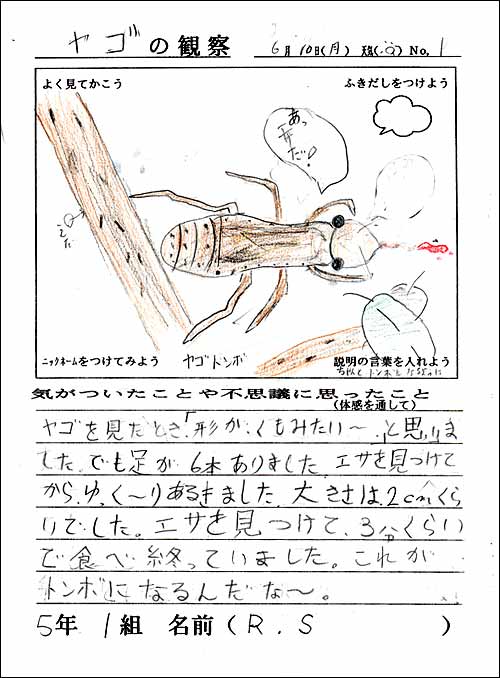 ヤゴの観察 6月10日(月) 天気( ) No. 1
よく見てかこう
ふきだしをつけよう
あっ
エサ
だ!
えだ
ニックネームをつけてみよう
ヤゴトンボ
説明の言葉を入れよう
気がついたことや不思議に思ったこと
(体感を通して)
ヤゴを見たとき、「形が、くもみたい〜」と思いま
した。でも足が6本ありました。エサを見つけて
から、ゆ、く〜りあるきました。大きさは、2cmくら
いでした。エサを見つけて、3分くらい
で食べ終っていました。これが
トンボになるんだな〜。
5年 1組 名前(R.S )